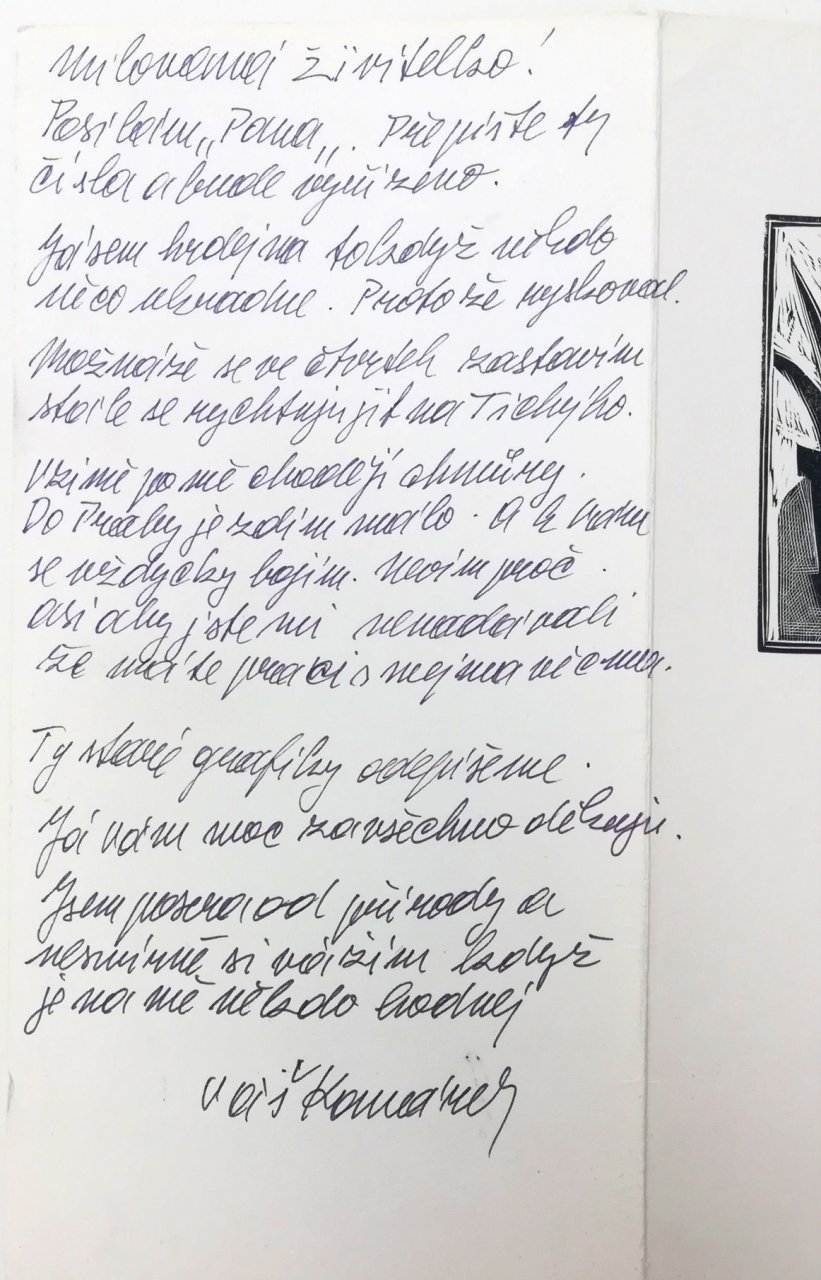 milovaná živitelko!
Posílám „Pana„. Přepište ty
čísla a bude vyřízeno.
Já sem hrdej na to když někdo
něco ukradne. Protože
Možná že se ve čtvrtek zastavim
stále se rychtuju jít na Tichýho.
V zimě po mě choděj chmůry.
Do Prahy jezdim málo. A k vám
se vždycky bojim. Nevim proč.
asi aby jste mi nenadávali
že máte práci s mejma věcma.
Ty staré grafiky odepíšeme.
Já vám moc za všechno děkuju.
Jsem posera od přírody a
nesmírně si vážim když
je na mě někdo hodnej
Váš Komárek